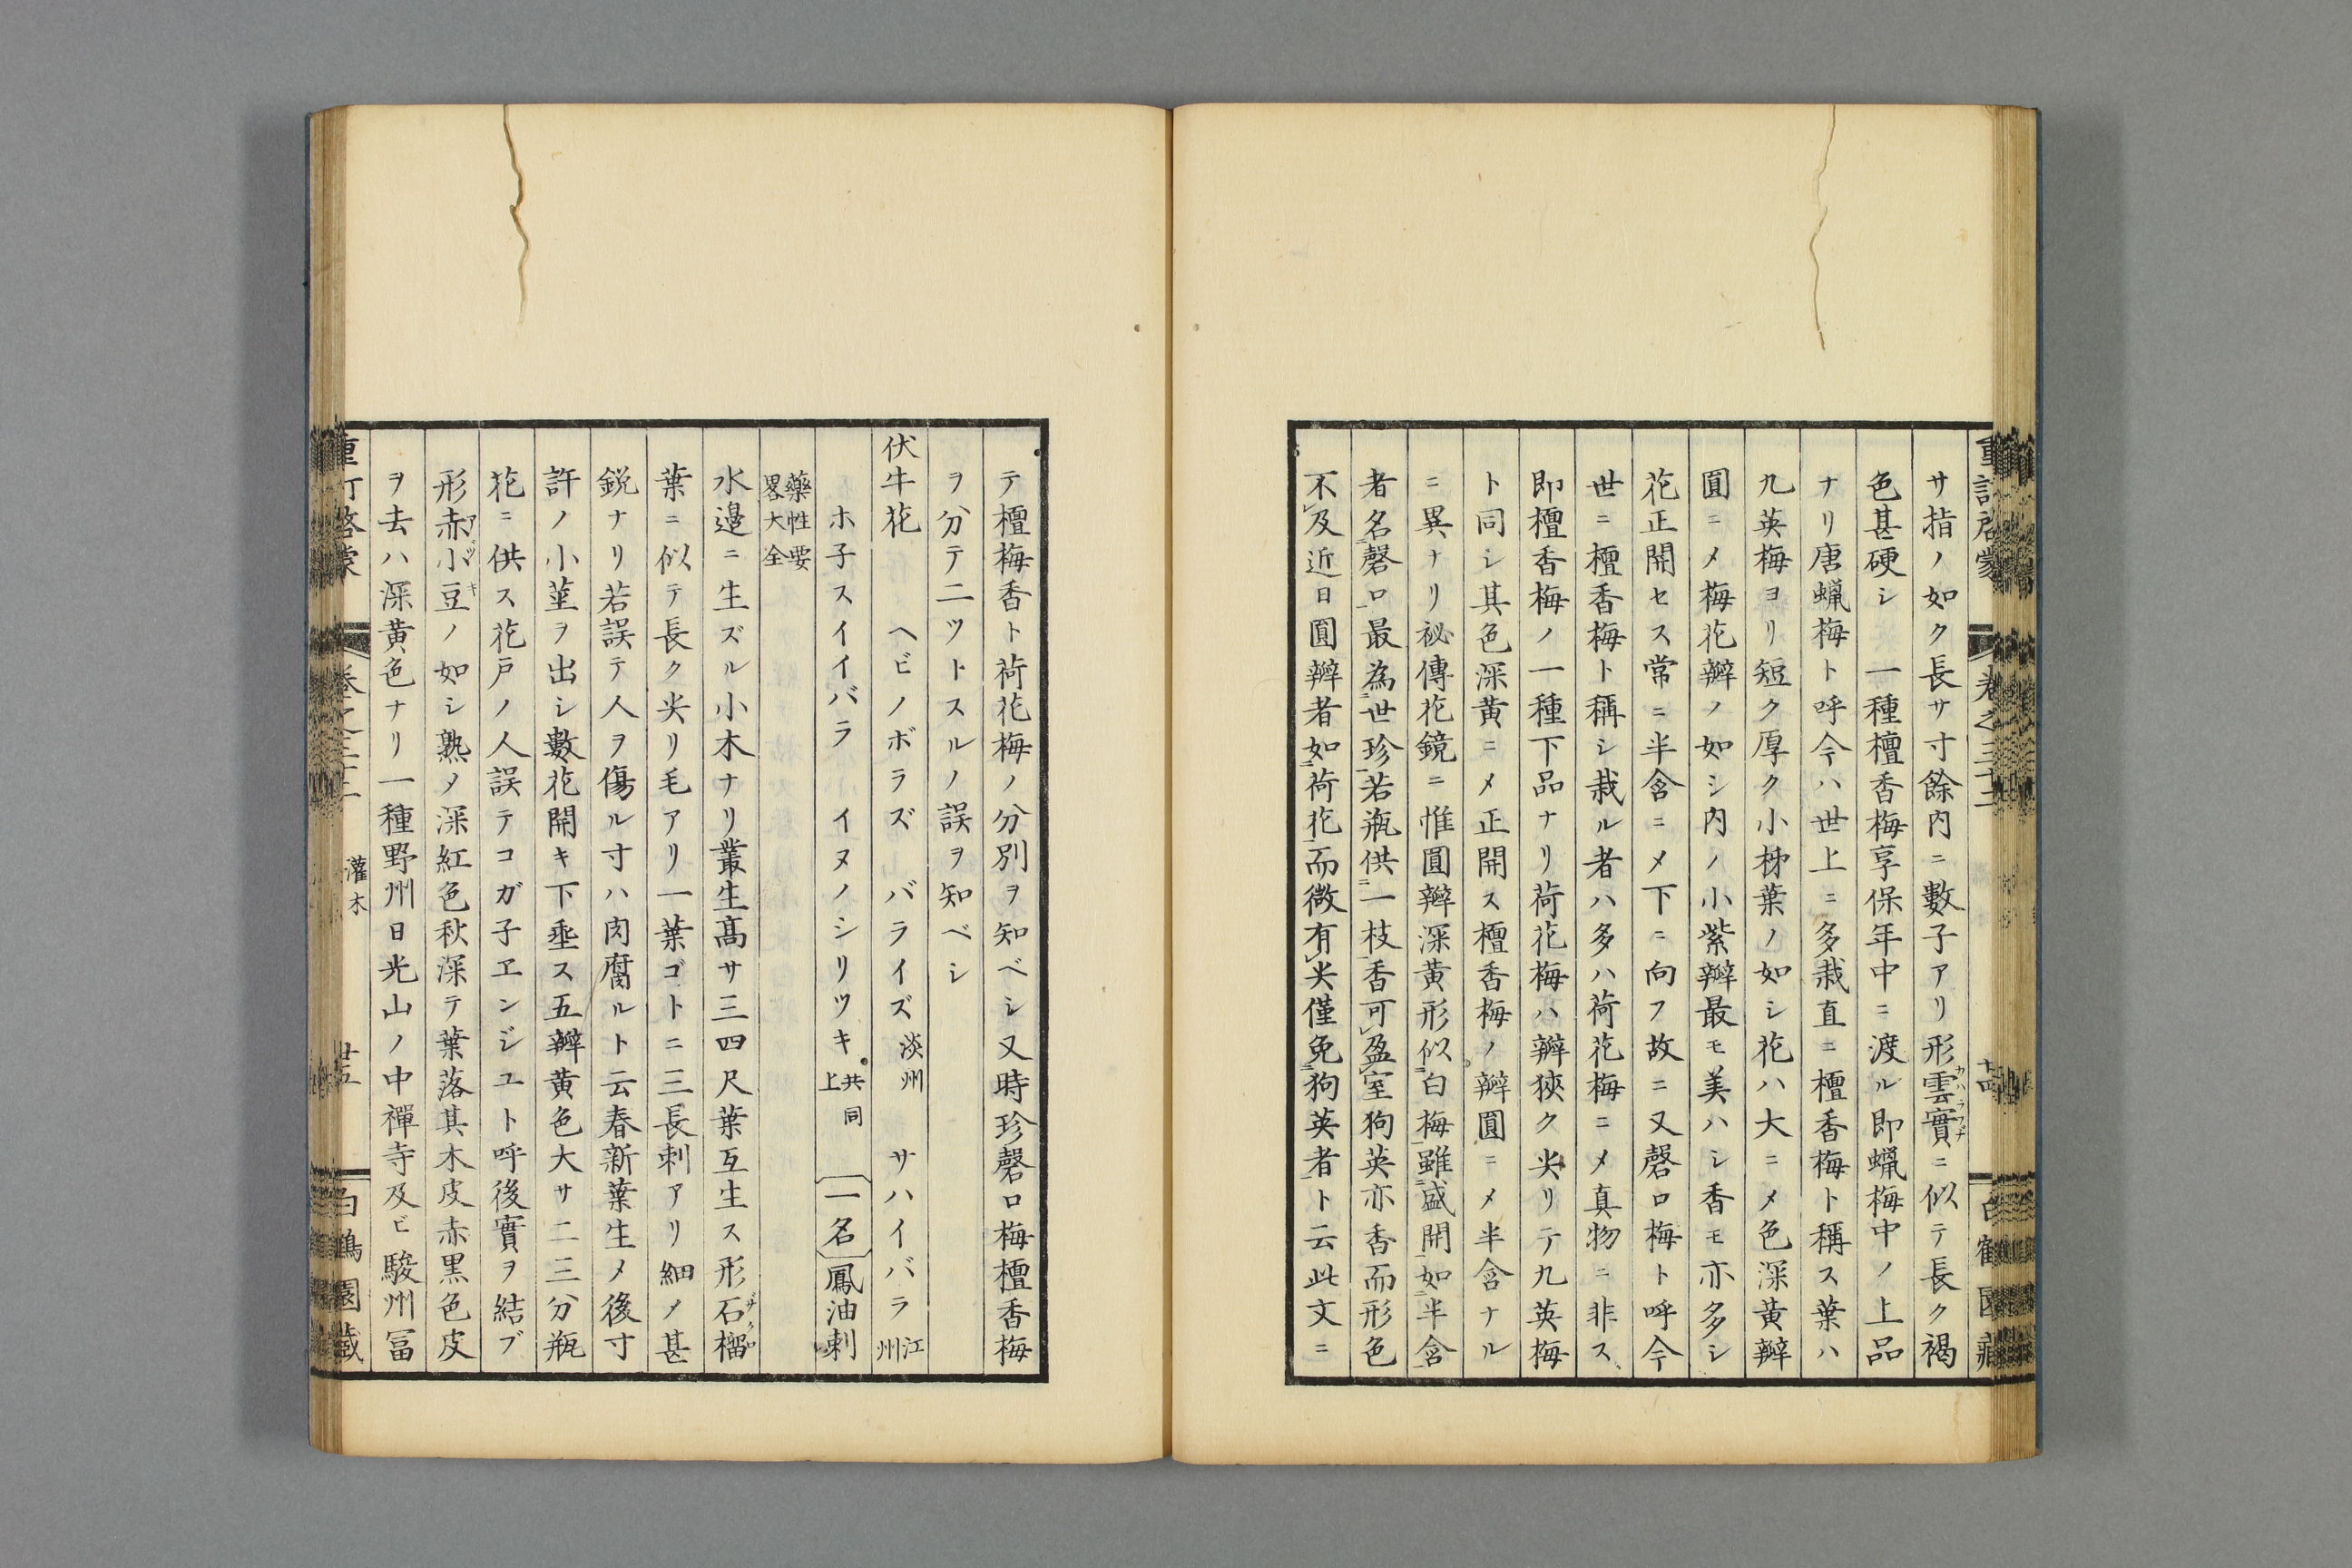 サ指ノ如ク長サ寸餘内ニ數子アリ形雲實ニ似テ長ク褐
カハラフヂ
色甚硬シ 一種檀香梅享保年中ニ渡ル即蝋梅中ノ上品
ナリ唐蝋梅ト呼今ハ世上ニ多栽直ニ檀香梅ト稱ス葉ハ
九英梅ヨリ短ク厚ク小柹葉ノ如シ花ハ大ニメ色深黄瓣
圓ニメ梅花瓣ノ如シ内ノ小紫瓣最モ美ハシ香モ亦多シ
花正開セス常ニ半含ニメ下ニ向フ故ニ又磬口梅ト呼今
世ニ檀香梅ト稱シ栽ル者ハ多ハ荷花梅ニメ真物ニ非ス
即檀香梅ノ一種下品ナリ荷花梅ハ瓣狹ク尖リテ九英梅
ト同シ其色深黄ニメ正開ス檀香梅ノ瓣圓ニメ半含ナル
ニ異ナリ祕傳花鏡ニ惟圓瓣深黄形似白梅雖盛開如半含
者名磬口最為世珍若瓶供一枝香可盈室狗英亦香而形色
不及近日圓瓣者如荷花而微有尖僅免狗英者ト云此文ニ
テ檀梅香ト荷花梅ノ分別ヲ知ベシ又時珍磬口梅檀香梅
ヲ分テ二ツトスルノ誤ヲ知ベシ
伏牛花 ヘビノボラズ バライズ 淡州 サハイバラ 江州
ホ子スイイバラ イヌノシリツキ 共同上 一名 鳳油刺
藥性要畧大全
水邉ニ生ズル小木ナリ叢生髙サ三四尺葉互生ス形石榴
ザクロ
葉ニ似テ長ク尖リ毛アリ一葉ゴトニ三長刺アリ細メ甚
鋭ナリ若誤テ人ヲ傷ル寸ハ肉腐ルト云春新葉生メ後寸
許ノ小莖ヲ出シ數花開キ下垂ス五瓣黄色大サ二三分瓶
花ニ供ス花戸ノ人誤テコガ子ヱンジユト呼後實ヲ結ブ
形赤小豆ノ如シ熟メ深紅色秋深テ葉落其木皮赤黒色皮
アヅキ
ヲ去ハ深黄色ナリ一種野州日光山ノ中禪寺及ビ駿州冨
灌木